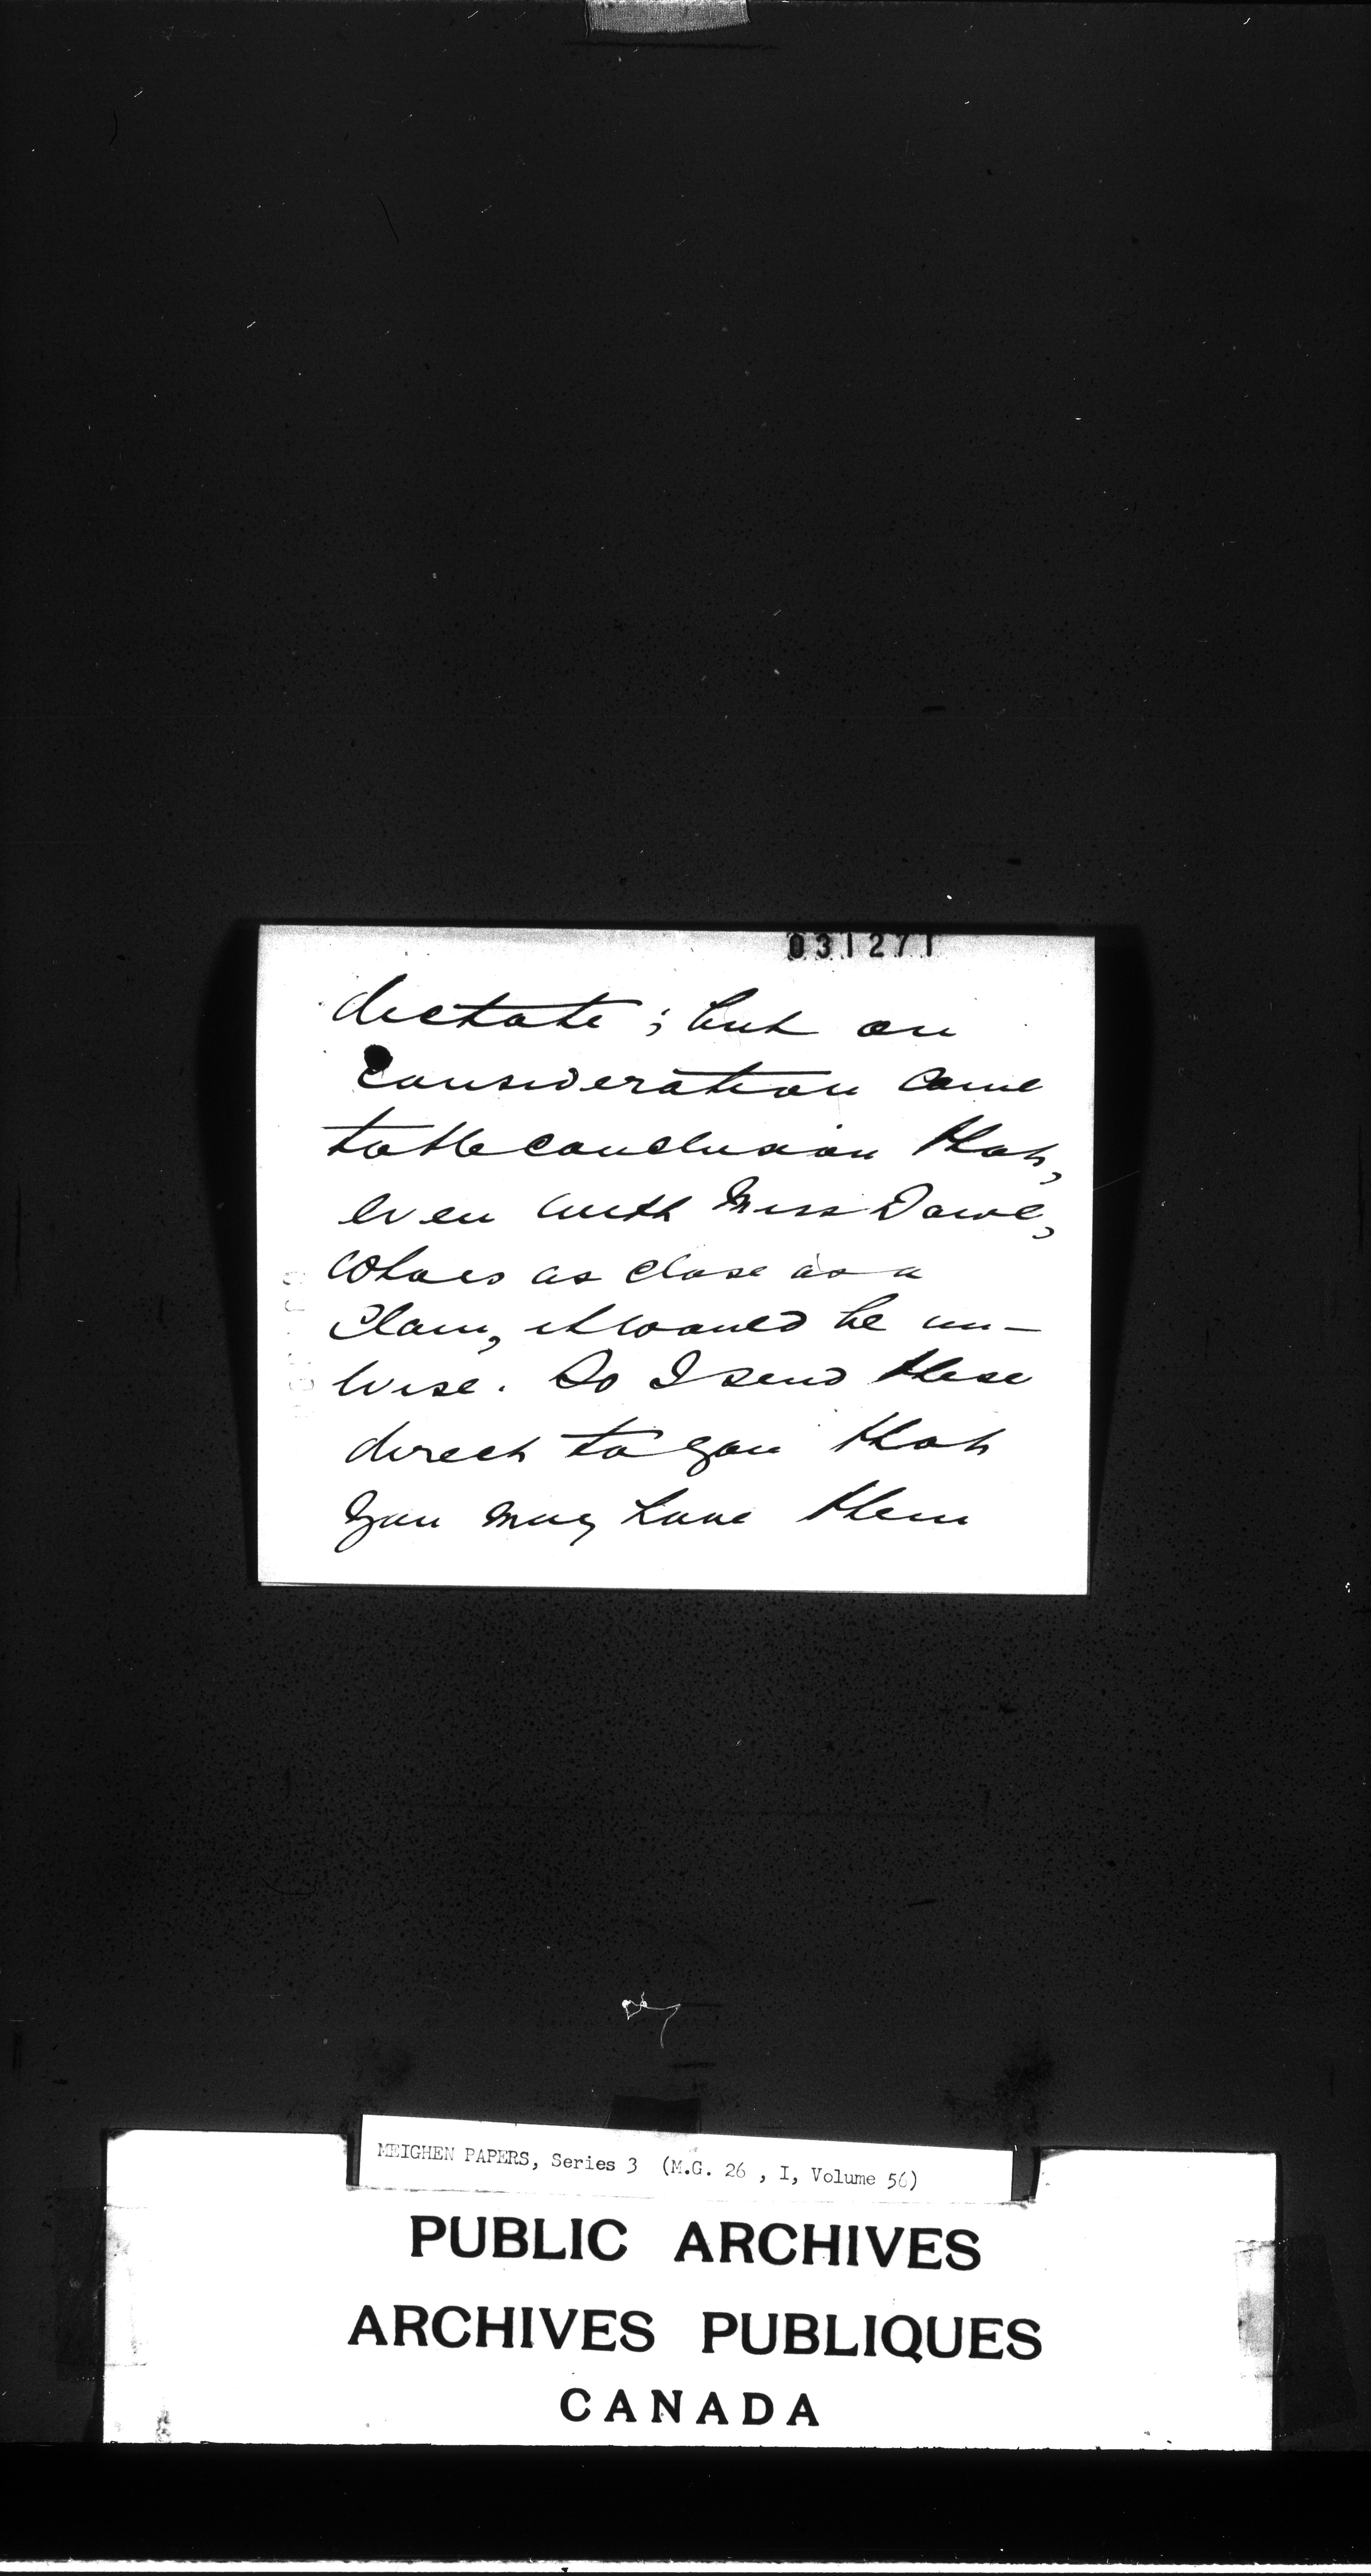 031271
dictate; but on
consideration came
to the conclusion that,
even with Miss Dowe,
who is as close as a
clam, it would be un-
wise. So I send these
direct to you that
you may have them
MEIGHEN PAPERS, Series 3 (M.G. 26 , I, Volume 56)
PUBLIC ARCHIVES
ARCHIVES PUBLIQUES
CANADA